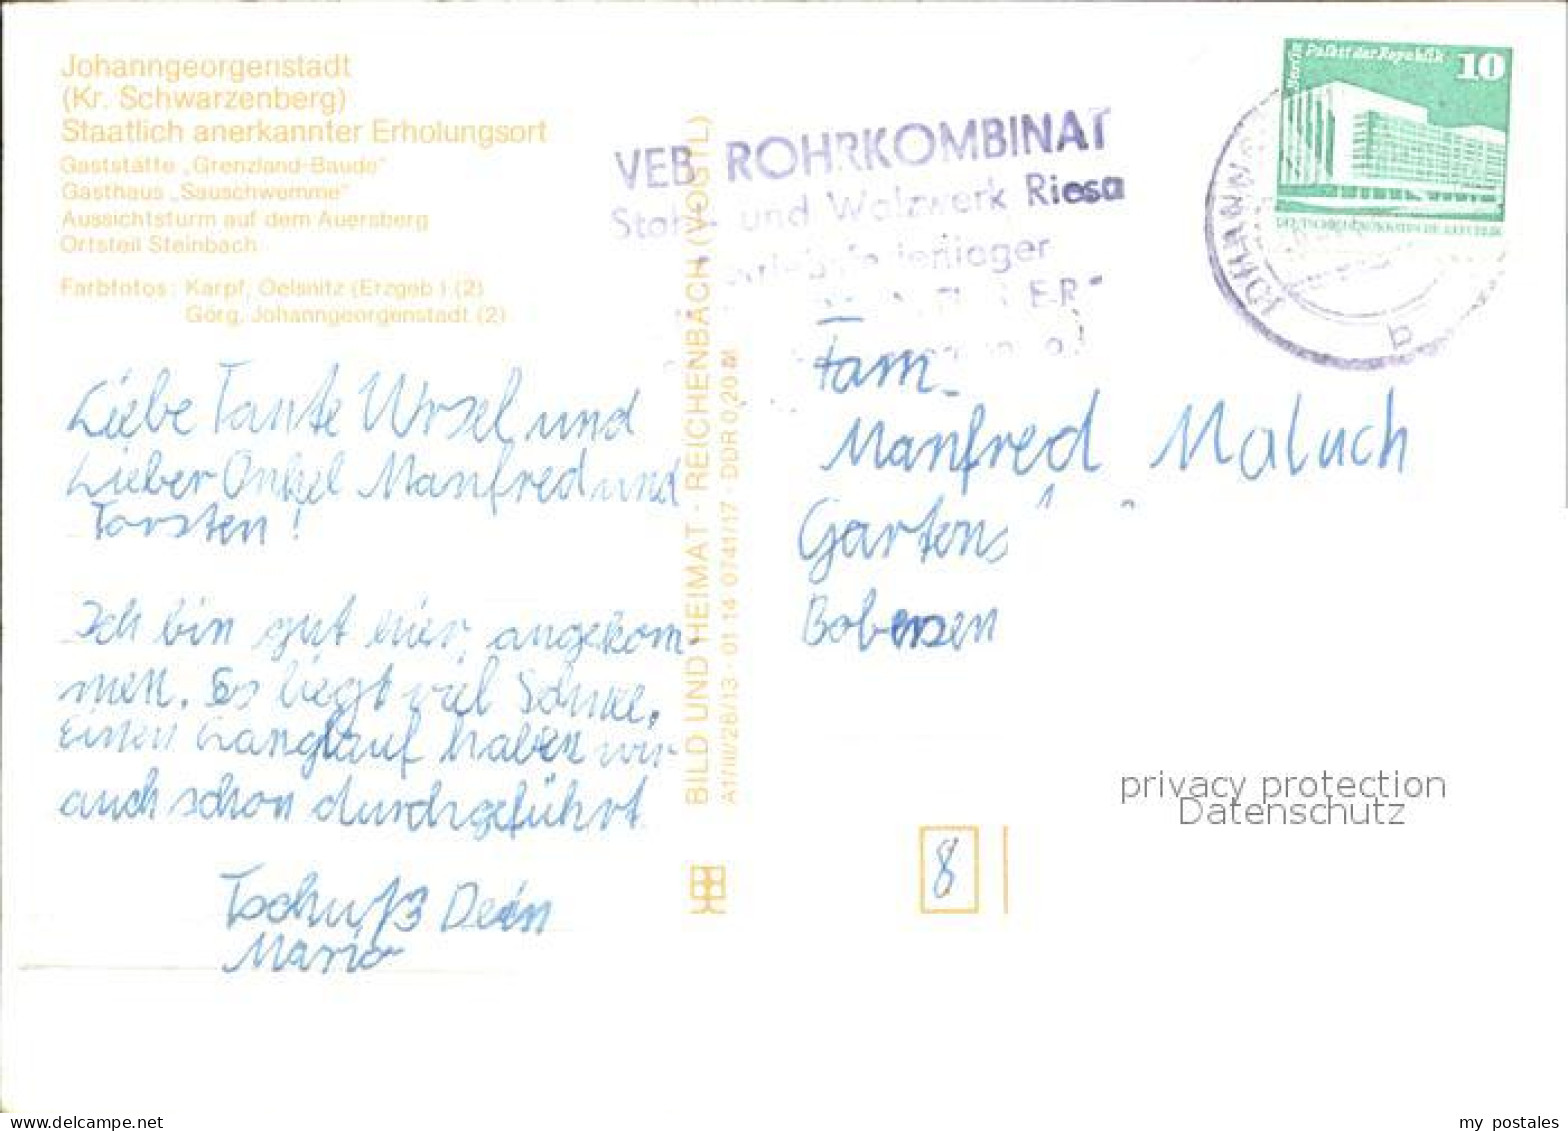 Johanngeorgenstadt
(Kr. Schwarzenberg)
Staatlich anerkannter Erholungsort
Gaststätte „Grenzland-Baude"
Gasthaus „Sauschwemme"
Aussichtsturm auf dem Auersberg
Ortsteil Steinbach
Farbfotos: Karpf, Oelsnitz (Erzgeb.) (2)
Görg, Johanngeorgenstadt (2)
Liebe Tante Ursel und
Lieber Onkel Manfred und
Torsten!
Ich bin gut hier angekom-
men. Es liegt viel Schnee.
Einen Langlauf haben wir
auch schon durchgeführt.
Tschüß Dein
Mario
BILD UND HEIMAT · REICHENBACH (VOGTL)
A1/III/26/13 · 01 14 0741/17 · DDR 0,20 M
VEB ROHRKOMBINAT
Stahl- und Walzwerk Riesa
Berlin Palast der Republik 10
DEUTSCHE DEMOKRATISCHE REPUBLIK
JOHANN
b
Fam.
Manfred Maluch
Gartens
Bobersen
privacy protection
Datenschutz
8
www.delcampe.net
my_postales